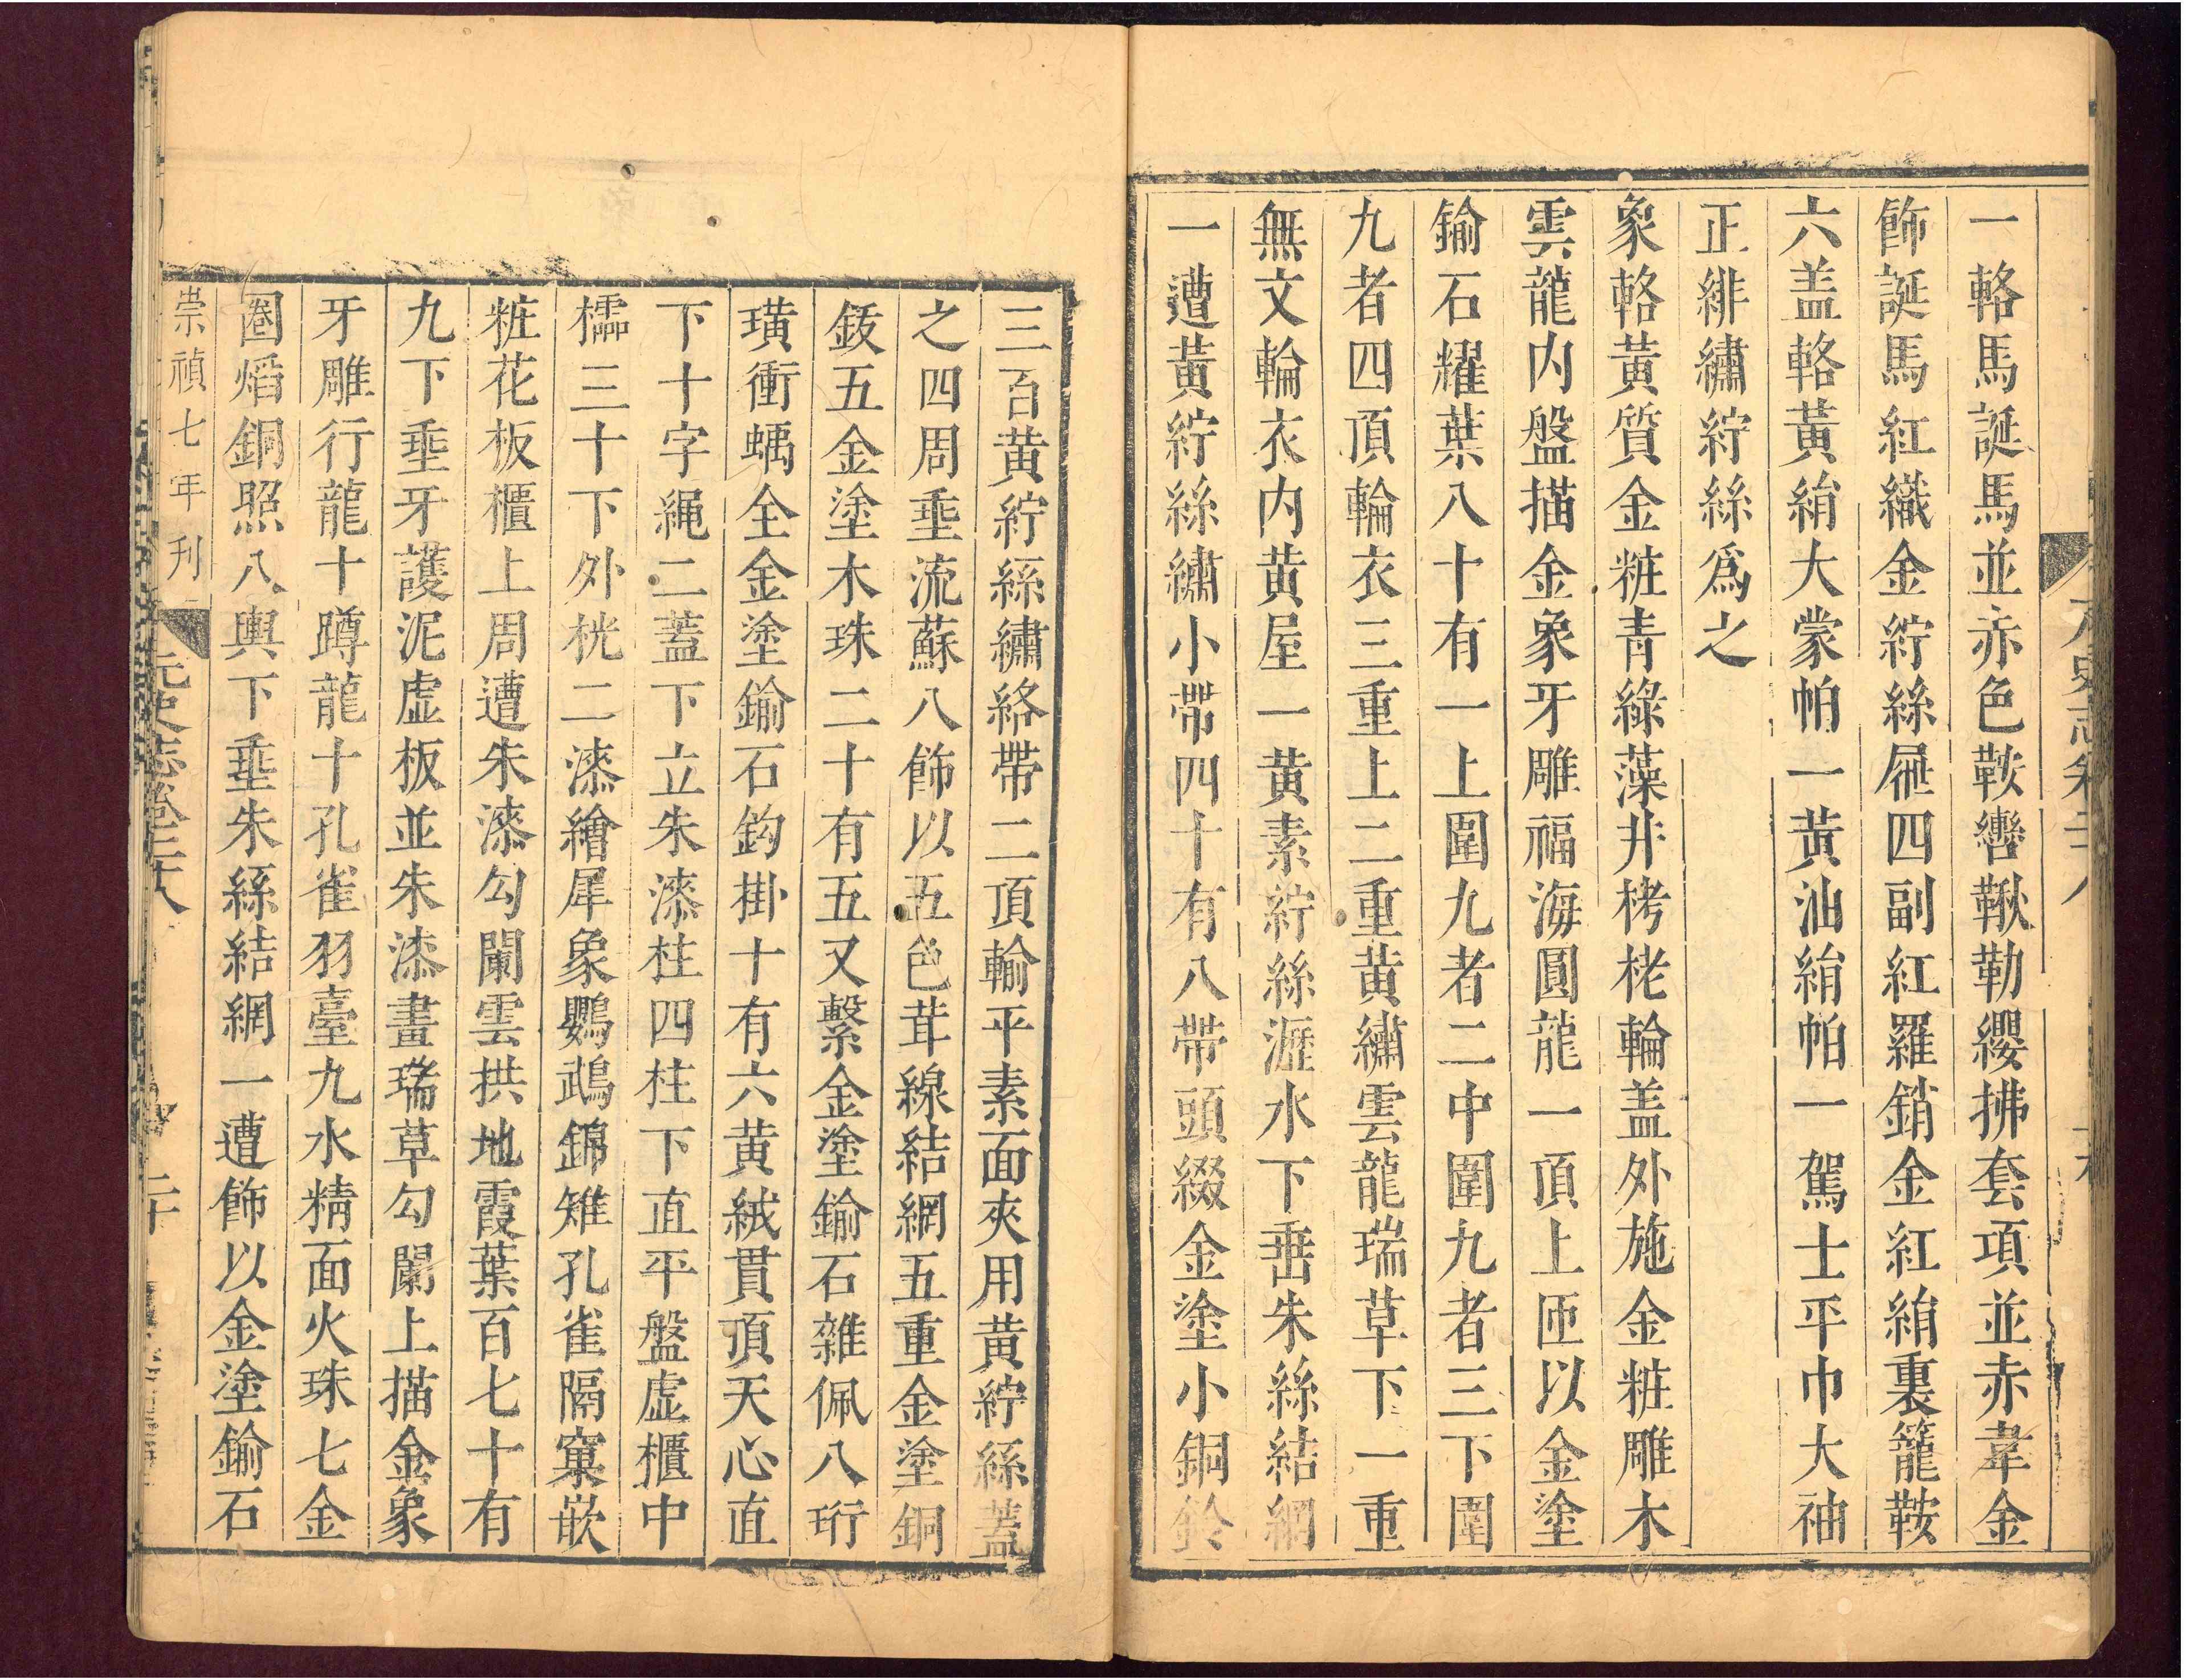 一輅馬誕馬並赤色鞍轡鞦勒纓拂套項並赤韋金
飾誕馬紅織金紵絲屜四副紅羅銷金紅絹裏籠鞍
六盖輅黃絹大蒙帕一黃油絹帕一駕士平巾大袖
正緋繡紵絲爲之
象輅黃質金粧青綠藻井栲栳輪盖外施金粧雕木
雲龍内盤描金象牙雕福海圓龍一頂上匝以金塗
鍮石耀葉八十有一上圍九者二中圍九者三下圍
九者四頂輪衣三重上二重黃繡雲龍瑞草下一重
無文輪衣内黃屋一黃素紵絲瀝水下垂朱絲結網
一遭黃紵絲繡小帶四十有八帶頭綴金塗小銅鈴
三百黃紵絲繡絡帶二頂輪平素面夾用黃紵絲蓋
之四周垂流蘇八飾以五色茸線結網五重金塗銅
鈸五金塗木珠二十有五又繫金塗鍮石雜佩八珩
璜衝蝺全金塗鍮石鈎掛十有六黃絨貫頂天心直
下十字繩二蓋下立朱漆柱四柱下直平盤虛櫃中
櫺三十下外桄二漆繪犀象鸚鵡錦雉孔雀隔窠嵌
粧花板櫃上周遭朱漆勾闌雲拱地霞葉百七十有
九下垂牙護泥虛板並朱漆畫瑞草勾闌上描金象
牙雕行龍十蹲龍十孔雀羽臺九水精面火珠七金
圈熖銅照八輿下垂朱絲結網一遭飾以金塗鍮石
崇禎七年刊 元史志卷二十八 二十